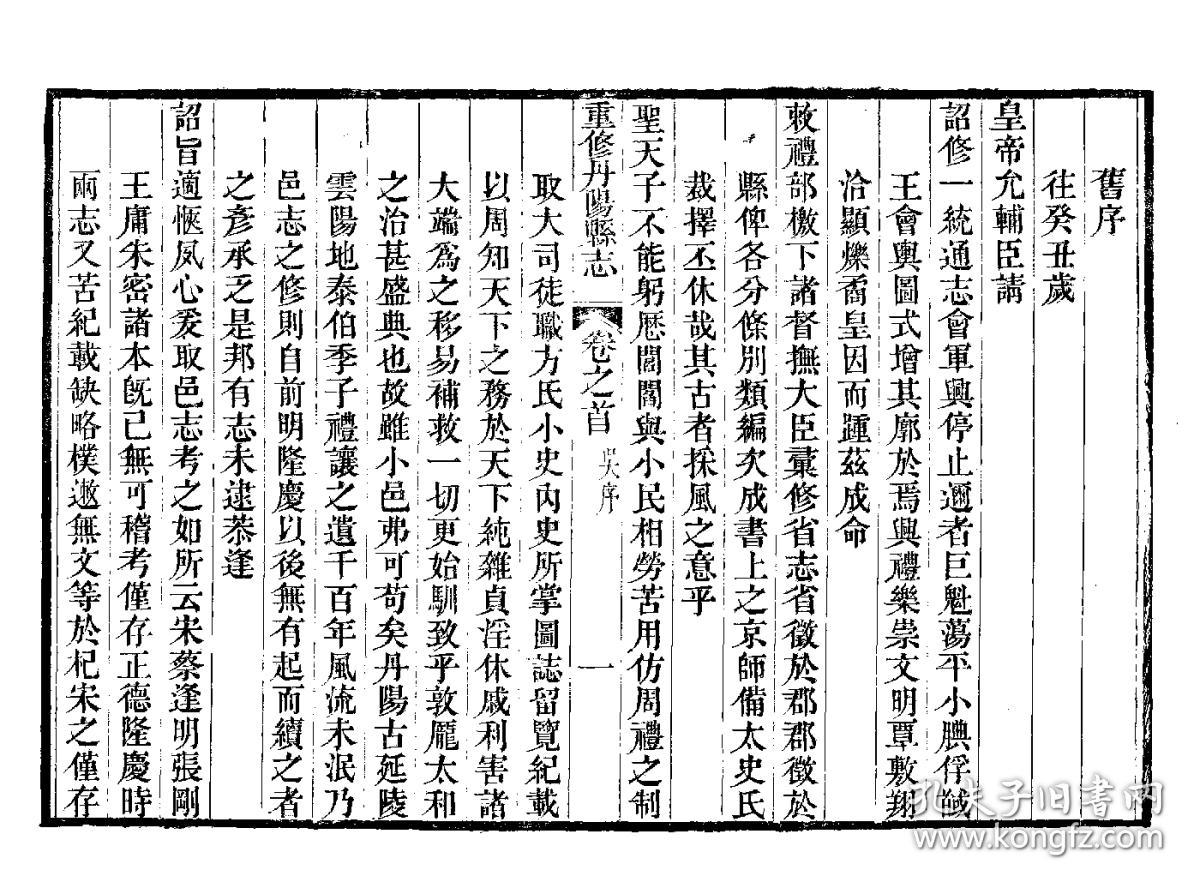 舊序
往癸丑歲
皇帝允輔臣請
詔修一統通志會軍興停止邇者巨魁蕩平小腆俘馘
王會輿圖式增其廓於焉興禮樂崇文明覃敷翔
洽顯爍矞皇因而踵茲成命
敕禮部檄下諸督撫大臣彙修省志省徵於郡郡徵於
縣俾各分條別類編次成書上之京師備太史氏
裁擇丕休哉其古者採風之意乎
聖天子不能躬歷閭閻與小民相勞苦用仿周禮之制
重修丹陽縣志 卷之首 吳序 一
取大司徒職方氏小史內史所掌圖誌留覽紀載
以周知天下之務於天下純雜貞淫休戚利害諸
大端為之移易補救一切更始馴致乎敦龐太和
之治甚盛典也故雖小邑弗可苟矣丹陽古延陵
雲陽地泰伯季子禮讓之遺千百年風流未泯乃
邑志之修則自前明隆慶以後無有起而續之者
之彥承乏是邦有志未逮恭逢
詔旨適愜夙心爰取邑志考之如所云宋蔡逢明張剛
王庸朱密諸本旣已無可稽考僅存正德隆慶時
兩志又苦紀載缺略樸遬無文等於杞宋之僅存
孔夫子旧书网
www.kongfz.com